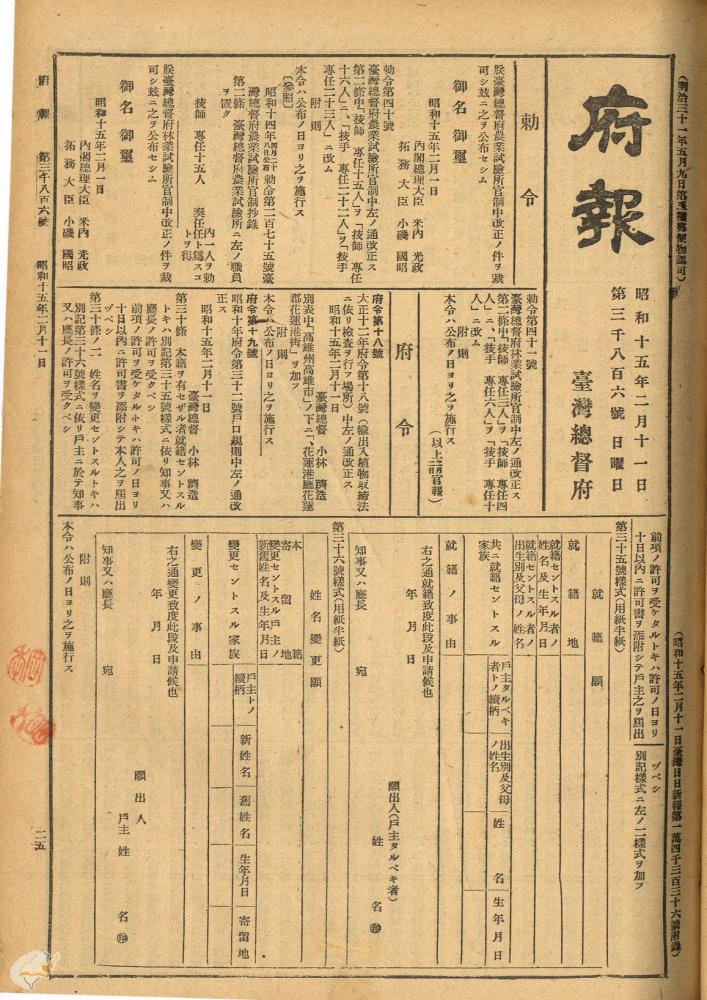 (明治三十一年五月九日第三種郵便物認可)
府報
昭和十五年二月十一日
第三千八百六號 日曜日
臺灣總督府
勅令
朕臺灣總督府農業試驗所官制中改正ノ件ヲ裁
可シ玆ニ之ヲ公布セシム
御名 御璽
昭和十五年二月一日
內閣總理大臣 米內 光政
拓務大臣 小磯 國昭
勅令第四十號
臺灣總督府農業試驗所官制中左ノ通改正ス
第二條中「技師 專任十五人」ヲ「技師 專任
十六人」ニ、「技手 專任二十二人」ヲ「技手
專任二十三人」ニ改ム
附則
本令ハ公布ノ日ヨリ之ヲ施行ス
〔參照〕
昭和十四年四月二十八日公布勅令第二百七十五號臺
灣總督府農業試驗所官制抄錄
第二條 臺灣總督府農業試驗所ニ左ノ職員
ヲ置ク
技師 專任十五人 奏任 內一人ヲ勅任ト爲スコトヲ得
朕臺灣總督府林業試驗所官制中改正ノ件ヲ裁
可シ玆ニ之ヲ公布セシム
御名 御璽
昭和十五年二月一日
內閣總理大臣 米內 光政
拓務大臣 小磯 國昭
勅令第四十一號
臺灣總督府林業試驗所官制中左ノ通改正ス
第二條中「技師 專任三人」ヲ「技師 專任四
人」ニ、「技手 專任六人」ヲ「技手 專任十
人」ニ改ム
附則
本令ハ公布ノ日ヨリ之ヲ施行ス
(以上二月二日官報)
府令
府令第十八號
大正十二年府令第十八號(輸出入植物取締法
ニ依リ檢查ヲ行フ場所)中左ノ通改正ス
昭和十五年二月十一日
臺灣總督 小林 躋造
別表中「高雄州高雄市」ノ下ニ「、花蓮港廳花蓮
郡花蓮港街」ヲ加フ
附則
本令ハ公布ノ日ヨリ之ヲ施行ス
府令第十九號
昭和十年府令第三十二號戶口規則中左ノ通改
正ス
昭和十五年二月十一日
臺灣總督 小林 躋造
第三十條 本籍ヲ有セザル者就籍セントスル
トキハ別記第三十五號樣式ニ依リ知事又ハ
廳長ノ許可ヲ受クベシ
前項ノ許可ヲ受ケタルトキハ許可ノ日ヨリ
十日以內ニ許可書ヲ添附シテ本人之ヲ屆出
ヅベシ
第三十條ノ二 姓名ヲ變更セントスルトキハ
別記第三十六號樣式ニ依リ戶主ニ於テ知事
又ハ廳長ノ許可ヲ受クベシ
前項ノ許可ヲ受ケタルトキハ許可ノ日ヨリ
十日以內ニ許可書ヲ添附シテ戶主之ヲ屆出
ヅベシ
別記樣式ニ左ノ二樣式ヲ加フ
第三十五號樣式(用紙半紙)
就籍願
就籍地
就籍セントスル者ノ姓名及生年月日
就籍セントスル者ノ出生別及父母ノ姓名
共ニ就籍セントスル家族
戶主タルベキ者トノ續柄
出生別及父母ノ姓名
姓名
生年月日
就籍ノ事由
右之通就籍致度此段及申請候也
年月日
願出人(戶主タルベキ者)
姓名㊞
知事又ハ廳長 宛
第三十六號樣式(用紙半紙)
姓名變更願
本籍
寄留地
變更セントスル戶主ノ新舊姓名及生年月日
變更セントスル家族
戶主トノ續柄
新姓名
舊姓名
生年月日
寄留地
變更ノ事由
右之通變更致度此段及申請候也
年月日
願出人
戶主 姓名㊞
知事又ハ廳長 宛
附則
本令ハ公布ノ日ヨリ之ヲ施行ス
(昭和十五年二月十一日臺灣日日新報第一萬四千三百三十六號附錄)
府報 第三千八百六號 昭和十五年二月十一日
二五